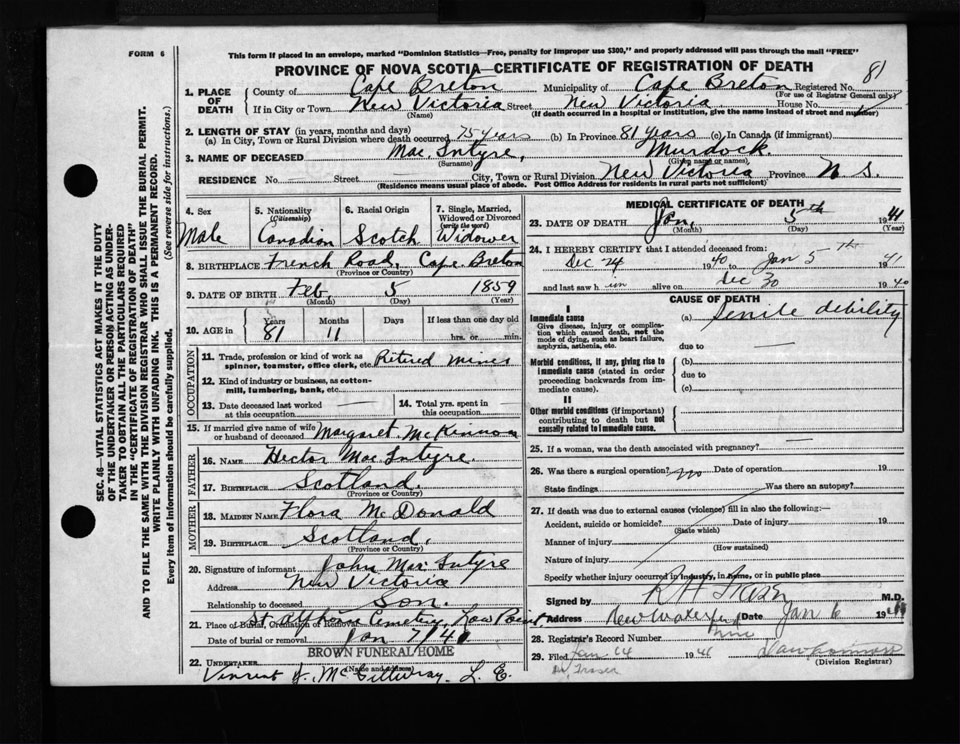 FORM 6
This form if placed in an envelope, marked "Dominion Statistics—Free, penalty for improper use $300," and properly addressed will pass through the mail "FREE"
PROVINCE OF NOVA SCOTIA—CERTIFICATE OF REGISTRATION OF DEATH
81
1. PLACE OF DEATH
County of Cape Breton Municipality of Cape Breton Registered No.
(For use of Registrar General only)
If in City or Town New Victoria Street New Victoria House No.
(Name) (If death occurred in a hospital or institution, give the name instead of street and number)
2. LENGTH OF STAY (in years, months and days)
(a) In City, Town or Rural Division where death occurred 75 years (b) In Province 81 years (c) In Canada (if immigrant)
3. NAME OF DECEASED Mac Intyre, Murdock
(Surname) (Given name or names)
RESIDENCE No. Street City, Town or Rural Division New Victoria Province N S.
(Residence means usual place of abode. Post Office Address for residents in rural parts not sufficient)
SEC. 46—VITAL STATISTICS ACT MAKES IT THE DUTY
OF THE UNDERTAKER OR PERSON ACTING AS UNDER-
TAKER TO OBTAIN ALL THE PARTICULARS REQUIRED
IN THE "CERTIFICATE OF REGISTRATION OF DEATH"
AND TO FILE THE SAME WITH THE DIVISION REGISTRAR WHO SHALL ISSUE THE BURIAL PERMIT.
WRITE PLAINLY WITH UNFADING INK. THIS IS A PERMANENT RECORD.
Every item of information should be carefully supplied. (See reverse side for instructions.)
4. Sex
Male
5. Nationality
(Citizenship)
Canadian
6. Racial Origin
Scotch
7. Single, Married,
Widowed or Divorced
(write the word)
Widower
8. BIRTHPLACE French Road, Cape Breton
(Province or Country)
9. DATE OF BIRTH Feb. 5 1859
(Month) (Day) (Year)
10. AGE in Years Months Days If less than one day old
81 11 hrs. or min.
OCCUPATION
11. Trade, profession or kind of work as
spinner, teamster, office clerk, etc. Retired miner
12. Kind of industry or business, as cotton-
mill, lumbering, bank, etc.
13. Date deceased last worked
at this occupation
14. Total yrs. spent in
this occupation
15. If married give name of wife
or husband of deceased Margaret McKinnon
FATHER
16. NAME Hector Mac Intyre.
17. BIRTHPLACE Scotland.
(Province or Country)
MOTHER
18. MAIDEN NAME Flora McDonald
19. BIRTHPLACE Scotland,
(Province or Country)
20. Signature of informant John Mac Intyre
Address New Victoria
Relationship to deceased Son.
21. Place of Burial, Cremation or Removal Cemetery, Low Point
Date of burial or removal Jan 7/41
BROWN FUNERAL HOME
22. UNDERTAKER
(Name and address)
Vincent J. McGillivray. L. E.
MEDICAL CERTIFICATE OF DEATH
23. DATE OF DEATH Jan. 5th 1941
(Month) (Day) (Year)
24. I HEREBY CERTIFY that I attended deceased from:
Dec 24 1940 to Jan 5th 1941
and last saw him alive on Dec 30 1940
CAUSE OF DEATH
I
Immediate cause
Give disease, injury or complica-
tion which caused death, not the
mode of dying, such as heart failure,
asphyxia, asthenia, etc.
(a) Senile debility
due to
Morbid conditions, if any, giving rise to
immediate cause (stated in order
proceeding backwards from im-
mediate cause).
(b)
due to
(c)
II
Other morbid conditions (if important)
contributing to death but not
causally related to immediate cause.
25. If a woman, was the death associated with pregnancy?
26. Was there a surgical operation? no Date of operation 19
State findings Was there an autopsy?
27. If death was due to external causes (violence) fill in also the following:—
Accident, suicide or homicide? Date of injury 19
(State which)
Manner of injury
(How sustained)
Nature of injury
Specify whether injury occurred in industry, in home, or in public place
Signed by M.D.
Address New Waterford Date Jan 6 19
28. Registrar's Record Number
29. Filed Jan 14 1941
(Division Registrar)
Dr. Fraser